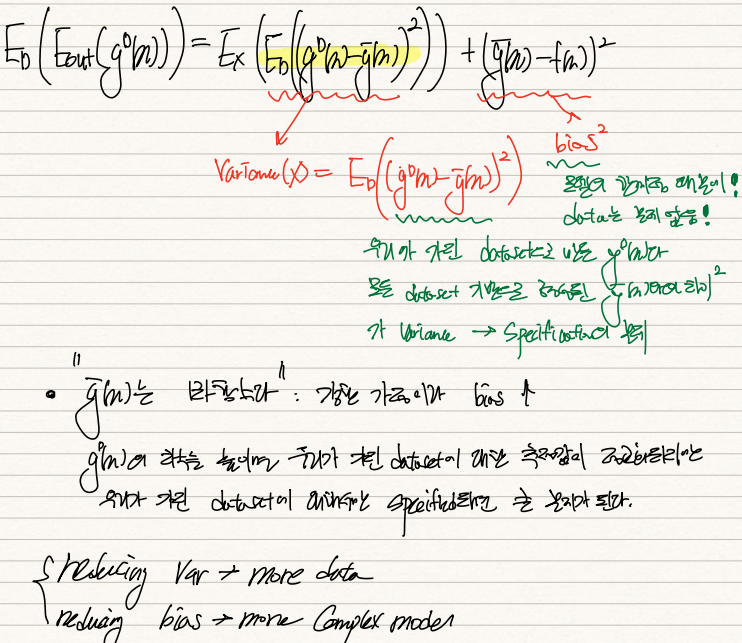 E_D(E_out(g^D(x))) = E_x(E_D((g^D(x)-ḡ(x))^2)) + (ḡ(x)-f(x))^2
bias^2
Variance(x) = E_D((g^D(x)-ḡ(x))^2)
모델이 때문이!
data는 문제 없음!
우리가 가진 dataset으로 만든 g^D(x)과
모든 dataset 기반으로 ḡ(x)와의 차이^2
가 Variance → Specification의 문제
• "ḡ(x)는 바람직하다" : 강한 가정이라 bias ↑
g^D(x)의 차수를 높이면 우리가 가진 dataset에 대한 추정값이 정교해지지만
우리가 가진 dataset에 대해서만 specified되면 큰 문제가 된다.
reducing Var → more data
reducing bias → more Complex model